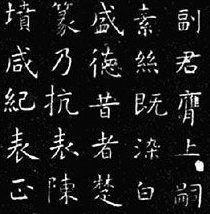 副君膺上嗣
素絲既染白
盛德昔者楚
篆乃抗表陳
墳咸紀表正